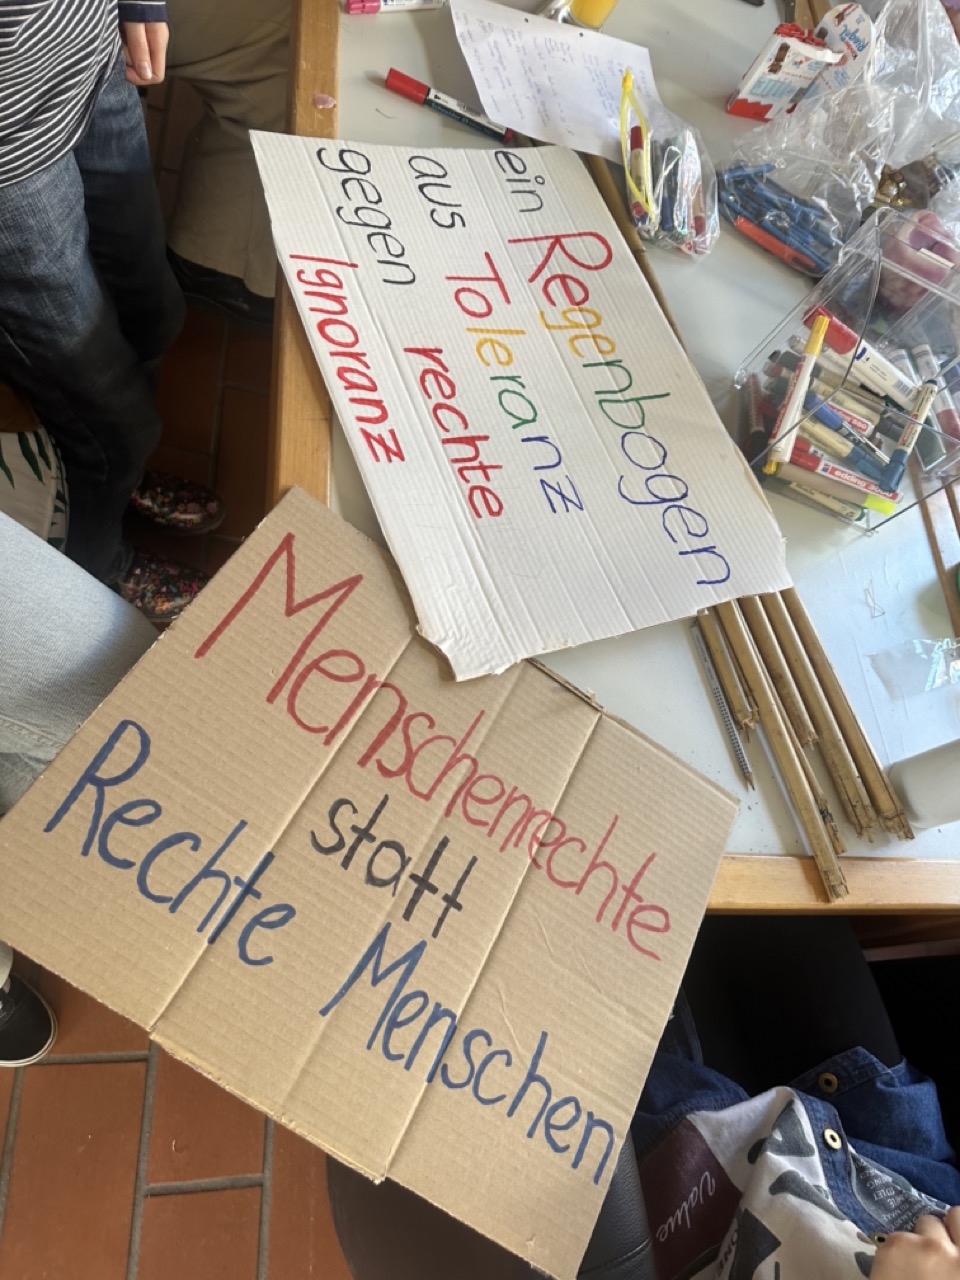 ein Regenbogen
aus Toleranz
gegen rechte
Ignoranz
Menschenrechte
statt
Rechte Menschen
edding
Value